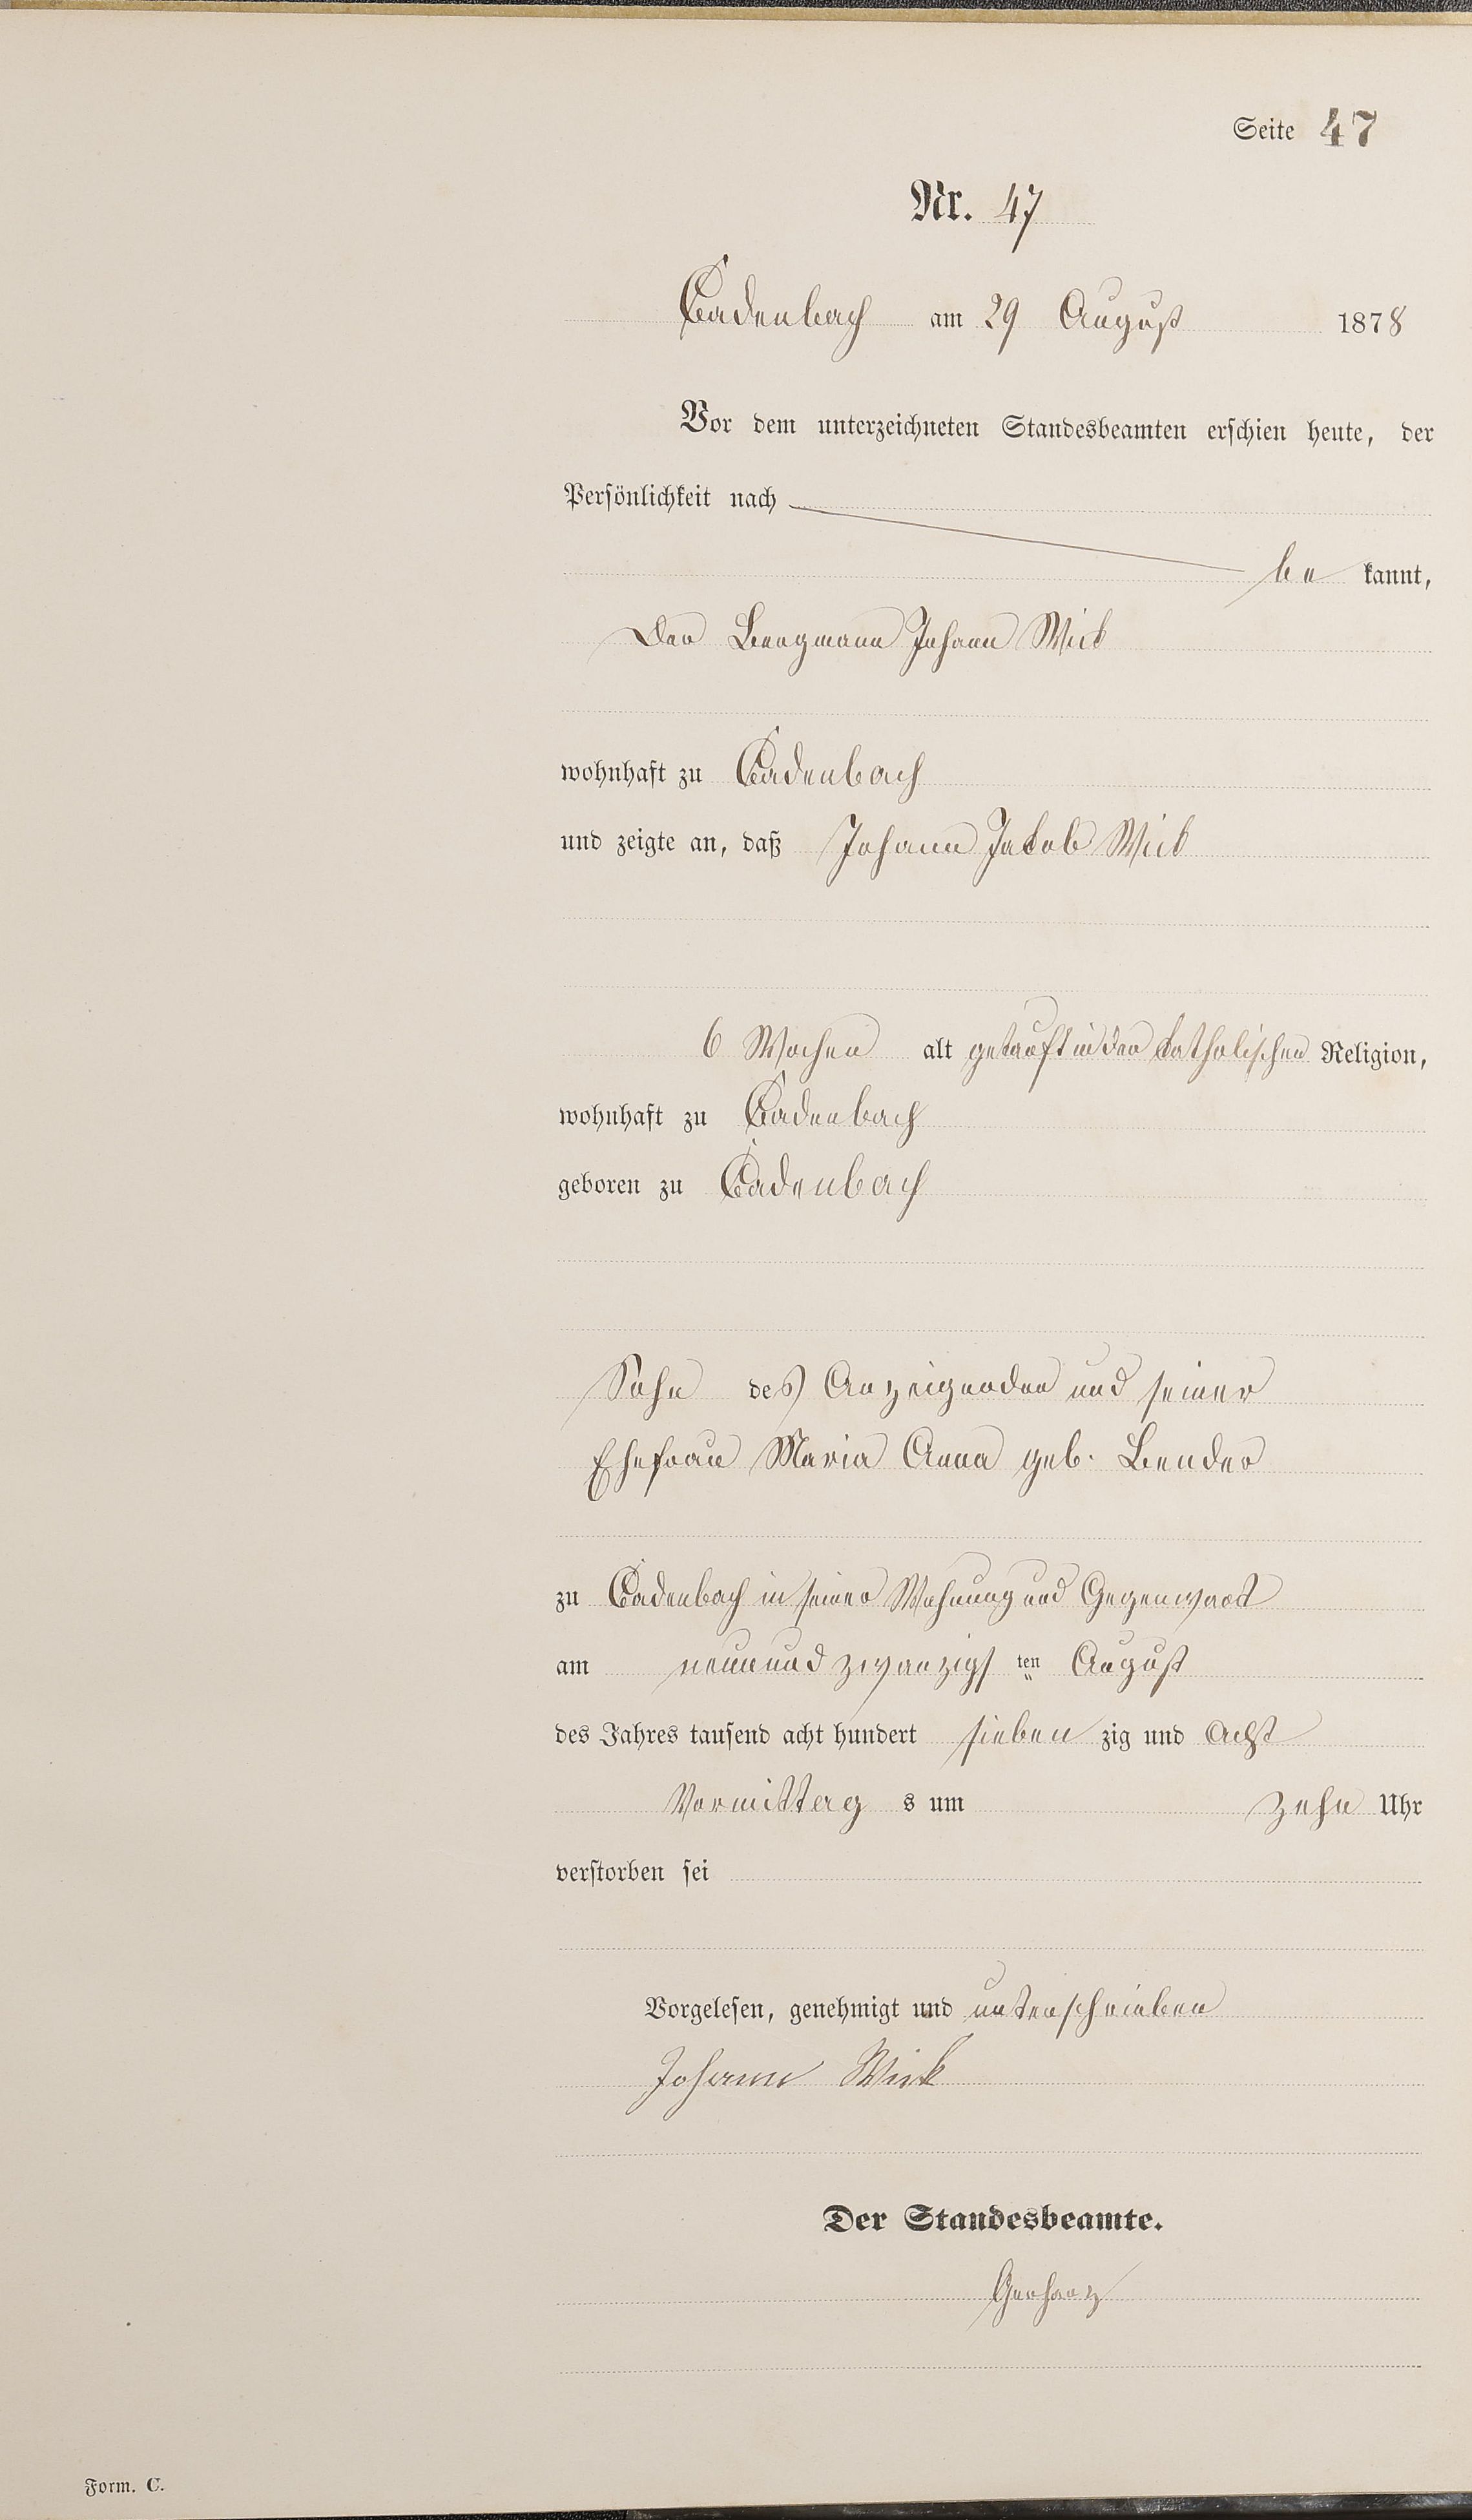 Seite 47
Nr. 47
Cadenbach am 29 August 1878
Vor dem unterzeichneten Standesbeamten erschien heute, der
Persönlichkeit nach
be kannt,
Der Bergmann Johann Wick
wohnhaft zu Cadenbach
und zeigte an, daß Johann Jakob Wick
6 Wochen alt getauft in der katholischen Religion,
wohnhaft zu Cadenbach
geboren zu Cadenbach
Sohn des Anzeigenden und seiner
Ehefrau Maria Anna geb. Bender
zu Cadenbach in seiner Wohnung und Gegenwart
am neunundzwanzigs ten August
des Jahres tausend acht hundert sieben zig und acht
Vormittag s um zehn Uhr
verstorben sei
Vorgelesen, genehmigt und unterschrieben
Johann Wick
Der Standesbeamte.
Gerharz
Form. C.